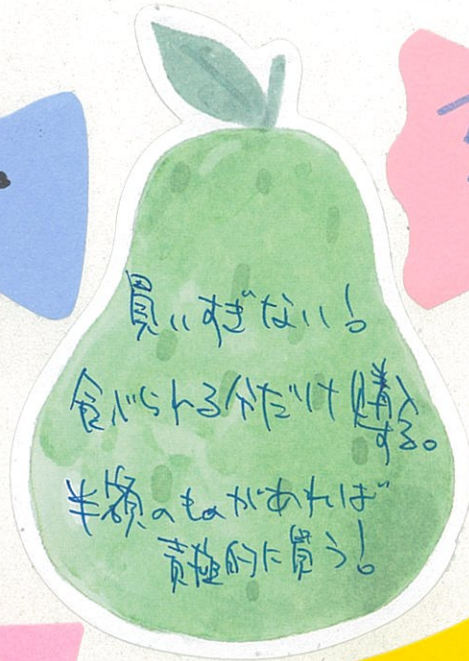 買いすぎない!
食べられる分だけ購入
する。
半額のものがあれば
責極的に買う!